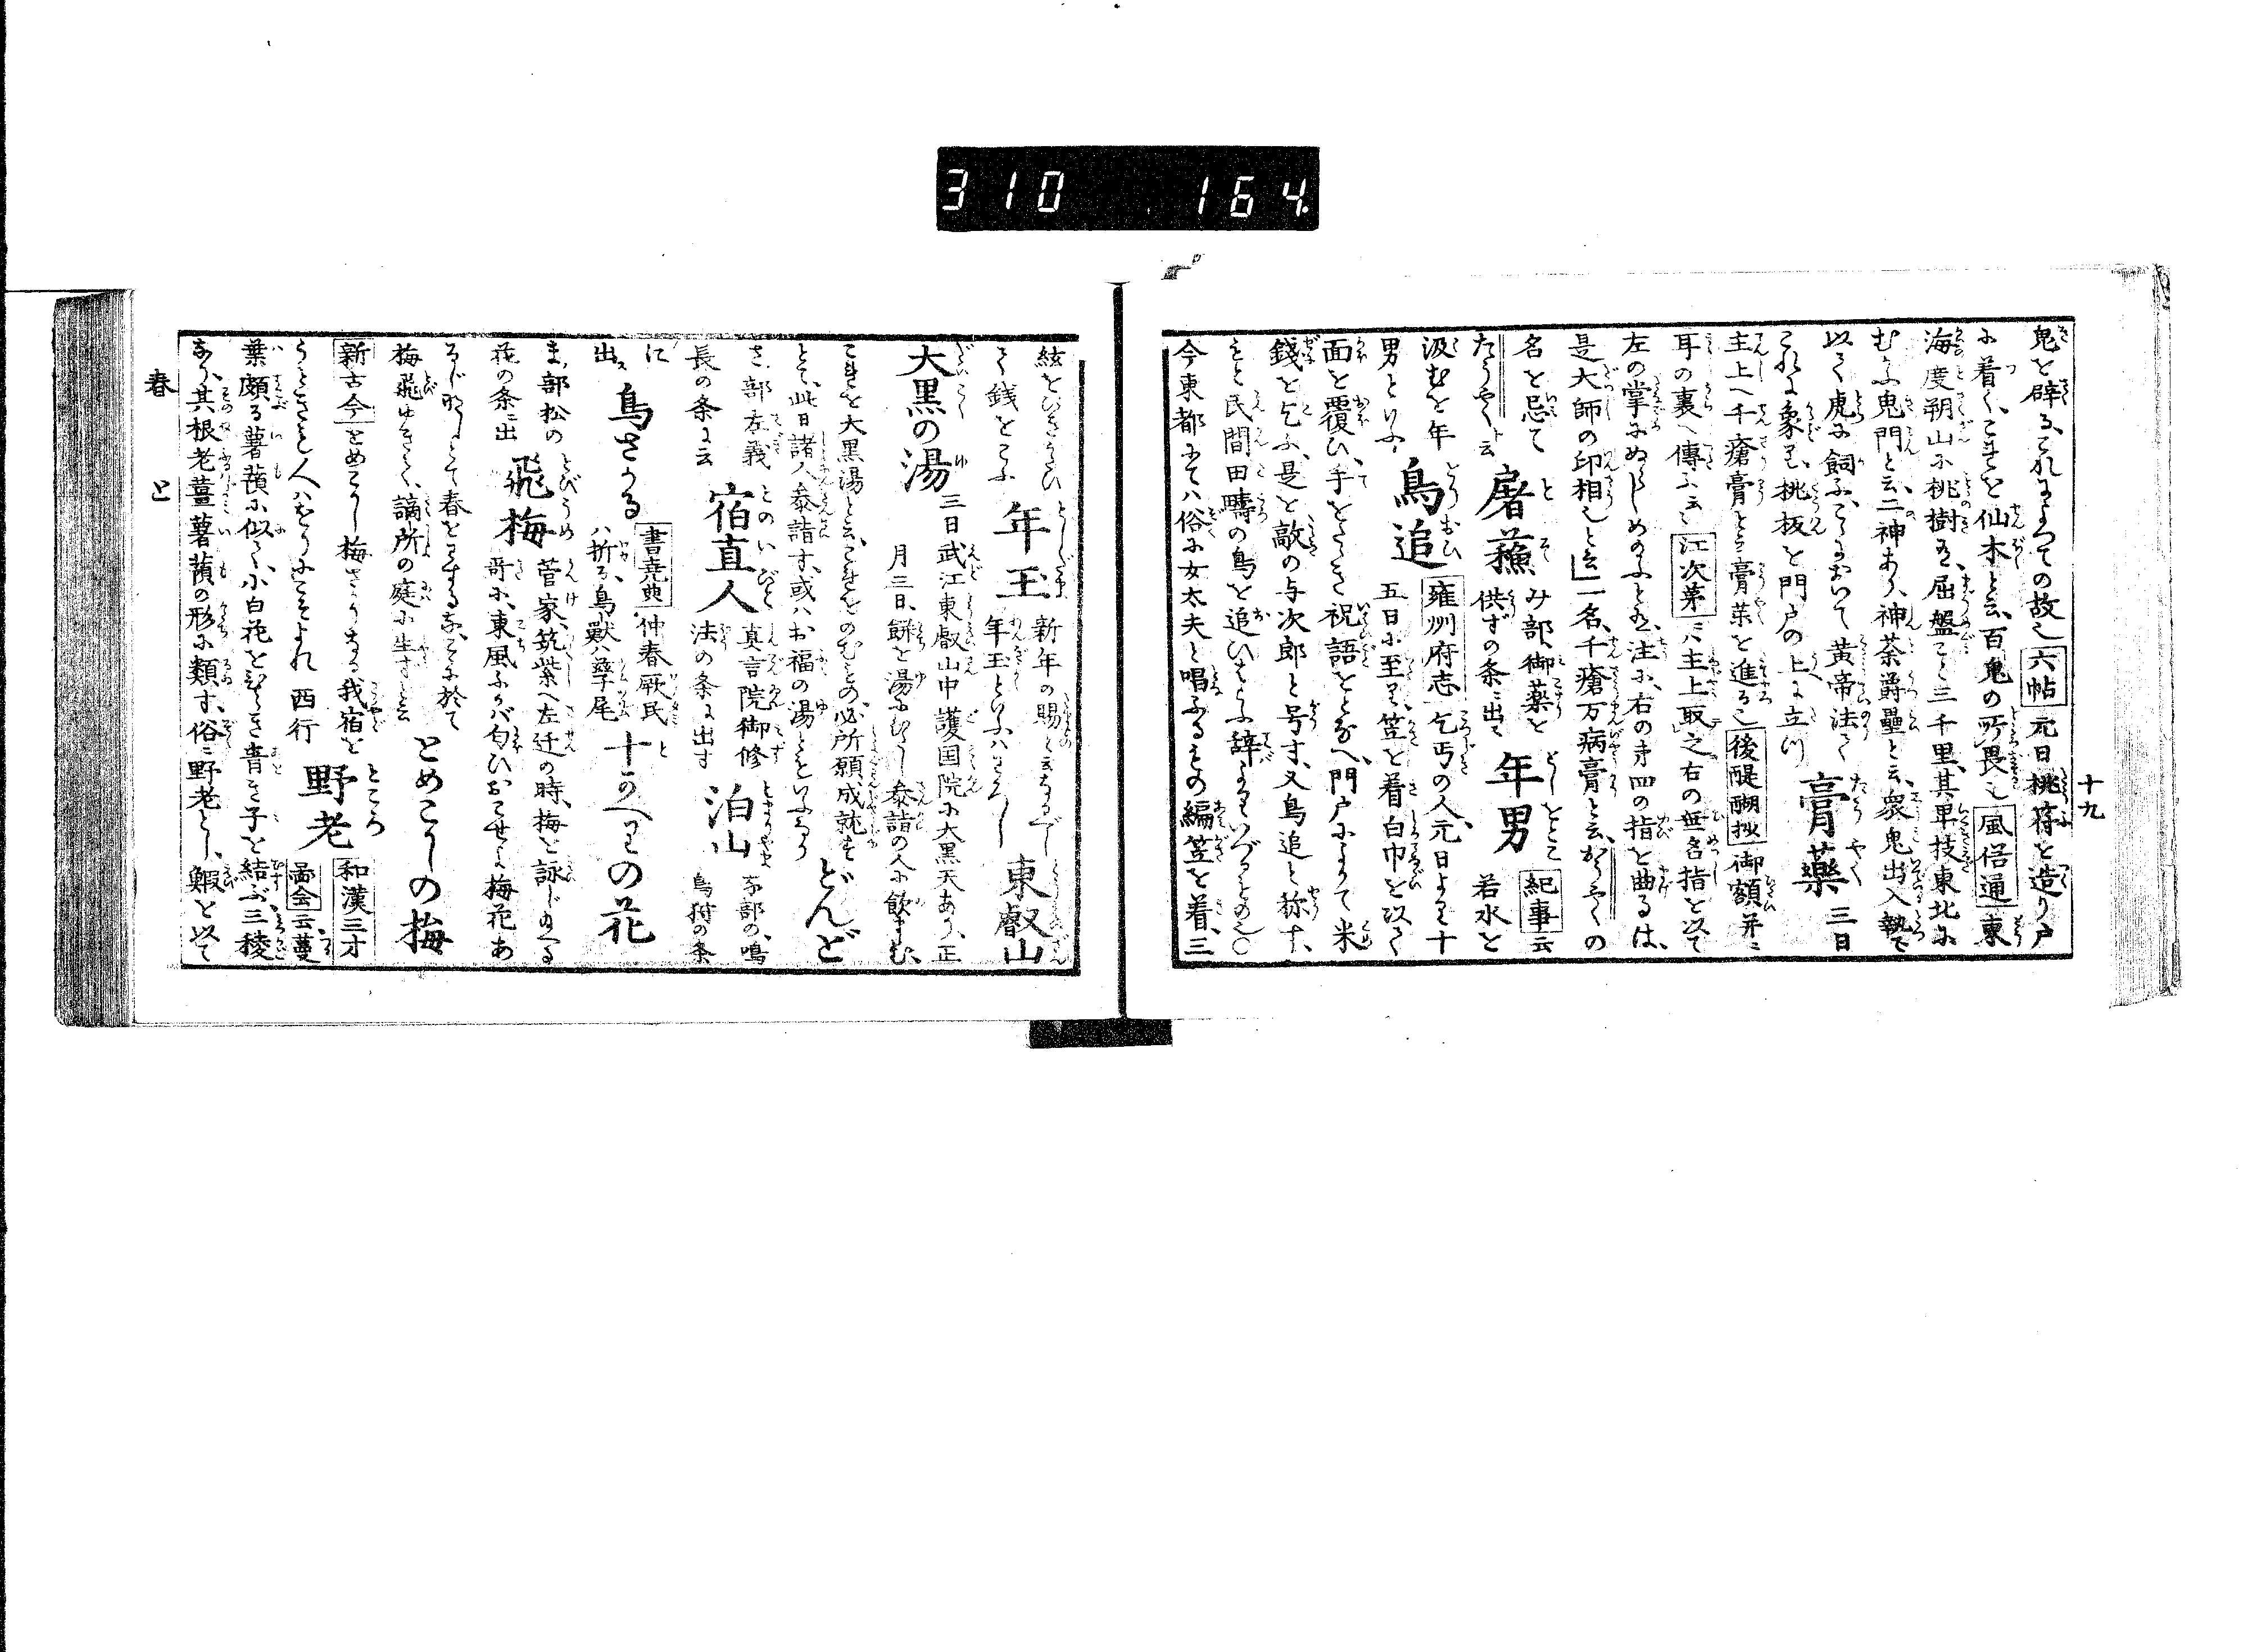 310 164
十九
鬼を辟る、これによつての故也 六帖 元日桃符を造り戸
に着く、これを仙木と云、百鬼の所畏也 風俗通 東
海度朔山に桃樹有、屈盤こと三千里、其卑枝東北に
むかふ鬼門と云、二神あり、神荼欝壘と云、衆鬼出入執て
以て虎に飼ふ、こゝにおいて黄帝法て
これに象り、桃板を門戸の上に立つ
膏薬 三日
主上へ千瘡膏と云膏薬を進る也 後醍醐抄 御額并ニ
耳の裏へ傳ふ云々 江次第 ニハ主上取之右の無名指を以て
左の掌にぬらしめ給ふと有、注に、右の手四の指を曲るは、
是大師の印相也と云一名、千瘡万病膏と云、がうやくの
名を忌て
たうやくと云
屠蘓 み部、御薬を
供ずの条ニ出
年男 紀事云
若水を
汲むを年
男といふ
鳥追 雍州府志 乞丐の人、元日より十
五日に至り、笠を着白巾を以て
面を覆ひ、手をたゝき祝語をとなへ、門戸によりて米
銭を乞ふ、是を敲の与次郎と号す、又鳥追と称す、
もと民間田疇の鳥を追ひはらふ辞よりいづるもの也○
今東都にては俗に女太夫と唱ふるもの編笠を着、三
絃をひきうたひ
て銭をこふ
年玉 新年の賜と云なるべし
年玉といふハわろし
東叡山
大黒の湯 三日武江東叡山中護国院に大黒天あり、正
月三日、餅を湯にひたし参詣の人に飲ましむ、
これを大黒湯と云、これをのむもの、必所願成就す
とて、此日諸人参詣す、或ハお福の湯ともいふなり
どんど
さ部左義
長の条に云
宿直人 真言院御修
法の条に出す
泊山 な部の鳴
鳥狩の条
に
出ス
鳥さかる 書堯典 仲春厥民
ハ析る、鳥獣ハ孳尾
十かへりの花
ま部松の
花の条ニ出
飛梅 菅家、筑紫へ左迁の時、梅を詠じ給へる
哥に、東風ふかバ匂ひおこせよ梅花あ
るじなしとて春をわするな、こゝに於て
梅飛ゆきて、謫所の庭に生ずと云
とめこかしの梅
新古今 とめこかし梅さかりなる我宿を
うときも人ハをりにこそよれ 西行
野老 和漢三才
啚会云蔓
葉頗る薯蕷に似て、小白花をひらき青き子を結ぶ、三稜
あり、其根老薑薯蕷の形に類す、俗ニ野老とし、鰕を以て
春 と